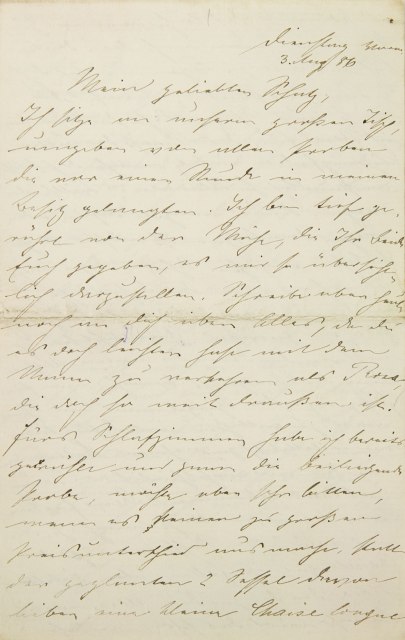 Dienstag Morn
3. Aug 86
Mein geliebter Schatz,
Ich sitze an unserm großen Tisch,
umgeben von allen Proben
die vor einer Stunde in meinen
Besitz gelangten. Ich bin tief ge-
rührt von der Mühe, die Ihr Beide
Euch gegeben, es mir so übersicht-
lich darzustellen. Schreibe aber heute
noch an Dich über Alles, da Du
es doch leichter hast mit dem
Mann zu verkehren als Rosa
die doch so weit draußen ist.
Fürs Schlafzimmer habe ich bereits
gewählt und zwar die beiliegende
Probe, möchte aber sehr bitten,
wenn es keinen zu großen
Preisunterschied ausmacht, statt
der geplanten 2 Sessel davon
lieber eine kleine Chaise longue